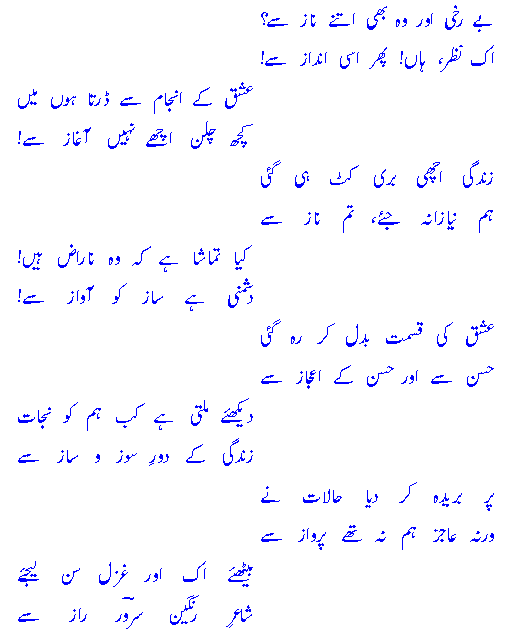 بے رخی اور وہ بھی اتنے ناز سے؟
اک نظر، ہاں! پھر اسی انداز سے!
عشق کے انجام سے ڈرتا ہوں میں
کچھ چلن اچھے نہیں آغاز سے!
زندگی اچھی بری کٹ ہی گئی
ہم نیازانہ جئے، تم ناز سے
کیا تماشا ہے کہ وہ ناراض ہیں!
دشمنی ہے ساز کو آواز سے!
عشق کی قسمت بدل کر رہ گئی
حسن سے اور حسن کے اعجاز سے
دیکھئے ملتی ہے کب ہم کو نجات
زندگی کے دورِ سوز و ساز سے
پر بریدہ کر دیا حالات نے
ورنہ عاجز ہم نہ تھے پرواز سے
بیٹھئے اک اور غزل سن لیجئے
شاعرِ رنگین سرور راز سے